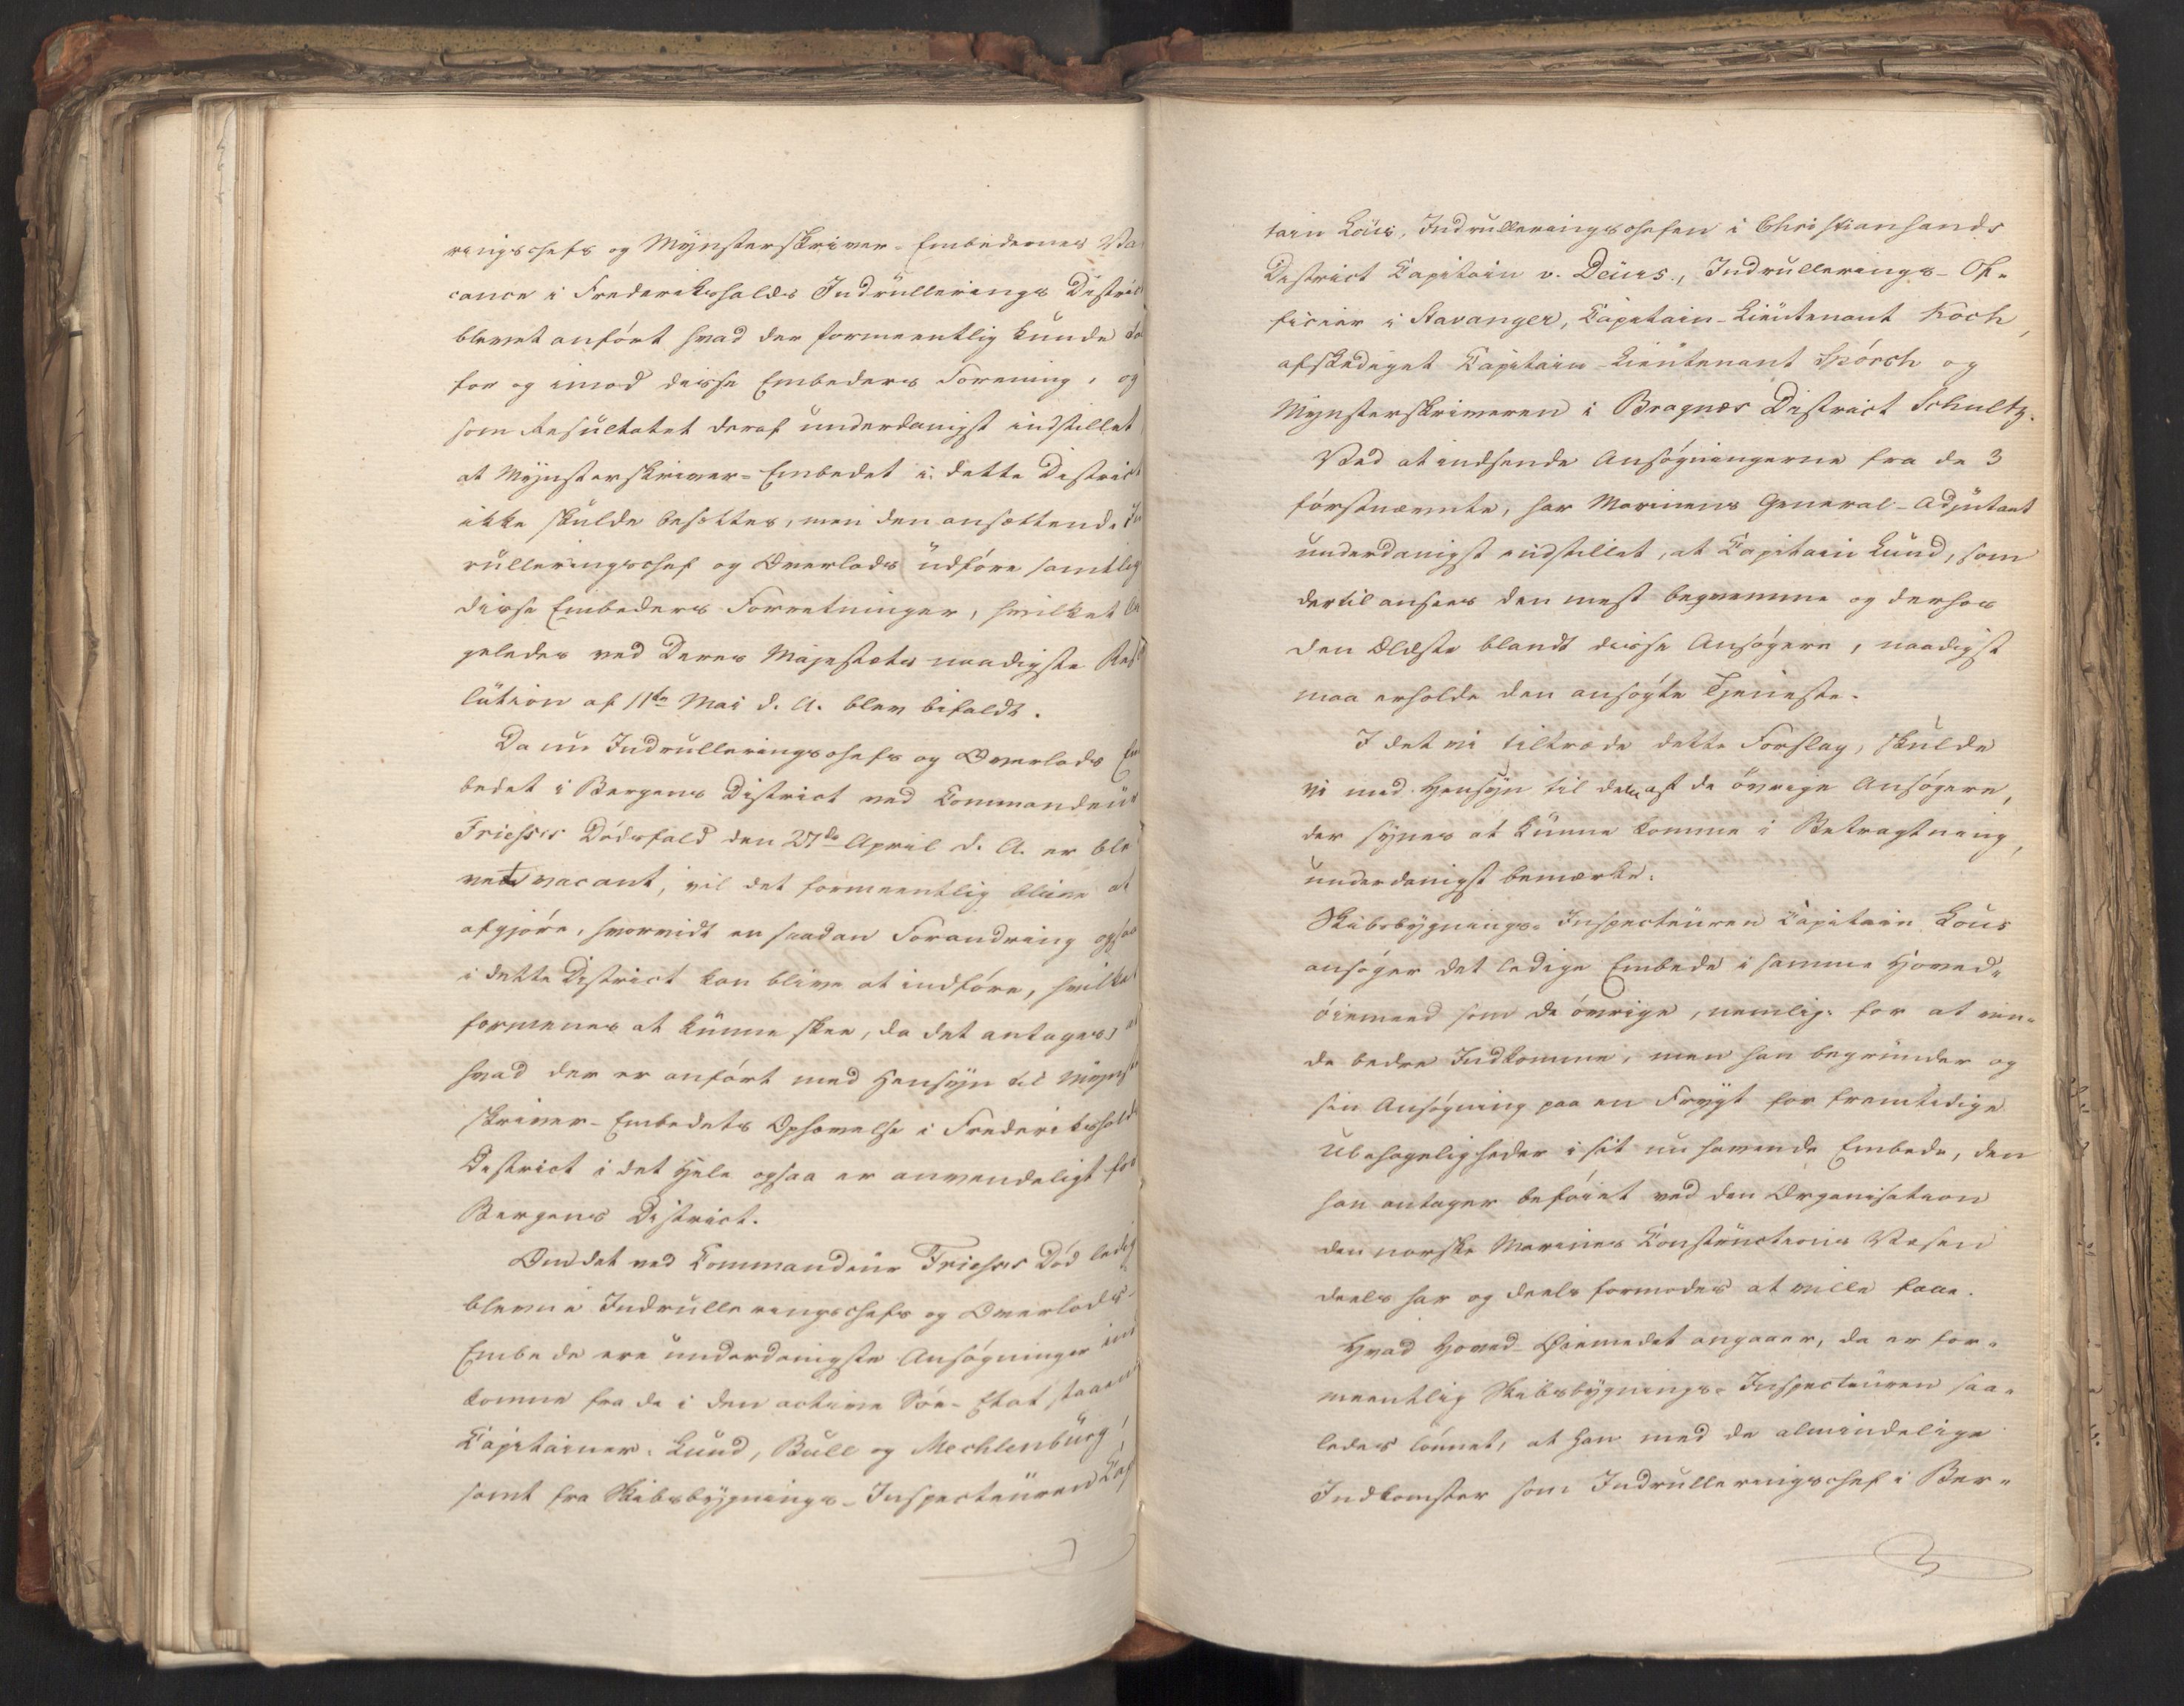 ringschefs og Mynsterskriver-Embedernes Va
cance i Frederikshalds Indrullerings Distric
blevet anført hvad der formeentlig kunde ta
for og imod disse Embeders Forening, og
som Resultatet deraf underdanigst indstillet
at Mynsterskriver-Embedet i dette District
ikke skulde besættes, men den ansættende In
rulleringschef og Overlods udføre samtlig
disse Embeders Forretninger, hvilket
geledes ved Deres Majestæts naadigste Reso
lution af 11te Mai d. A. blev bifaldt.
Da nu Indrulleringschefs og Overlods Em
bedet i Bergens District ved Commandeur
Friesses Dødsfald den 27de April d. A. er ble
vet vacant, vil det formeentlig blive at
afgjøre, hvorvidt en saadan Forandring ogsaa
i dette District kan blive at indføre, hvilket
formenes at kunne skee, da det antages, at
hvad der er anført med Hensyn til Mynst
skriver-Embedets Ophævelse i Frederikshalds
District i det Hele ogsaa er anvendeligt for
Bergens District.
Om det ved Commandeur Friesses Død ledig
blevne Indrulleringschefs og Overlods-
Embede ere underdanigste Ansøgninger ind
komne fra de i den active Søe-Etat staaen
Capitainer: Lund, Bull og Mechlenburg,
samt fra Skibsbygnings-Inspecteuren Cap
tain Lous, Indrulleringschefen i Christiansands
District Capitain v. Deurs., Indrullerings-Of-
ficier i Stavanger, Capitain-Lieutenant Koch,
afskediget Capitain-Lieutenant Spörch og
Mynsterskriveren i Bragnæs District Schultz.
Ved at indsende Ansøgningerne fra de 3
førstnævnte, har Marinens General-Adjutant
underdanigst indstillet, at Capitain Lund, som
dertil ansees den mest beqvemme og derhos
den Ældste blandt disse Ansøgere, naadigst
maa erholde den ansøgte Tjeneste.
I det vi tiltræde dette Forslag, skulde
vi med Hensyn til dem af de øvrige Ansøgere,
der synes at kunne komme i Betragtning,
underdanigst bemærke:
Skibsbygnings-Inspecteuren Capitain Lous
ansøger det ledige Embede i samme Hoved-
øiemeed som de øvrige, nemlig: for at vin-
de bedre Indkomme, men han begrunder og
sin Ansøgning paa en Frygt for fremtidige
Ubehageligheder i sit nu havende Embede, den
han antager beføiet ved den Organisation
den norske Marines Constructions Vesen
deels har og deels formodes at ville faae.
Hvad Hoved-Øiemedet angaaer, da er for-
meentlig Skibsbygnings-Inspecteuren saa-
ledes lønnet, at han med de almindelige
Indkomster som Indrulleringschef i Ber-